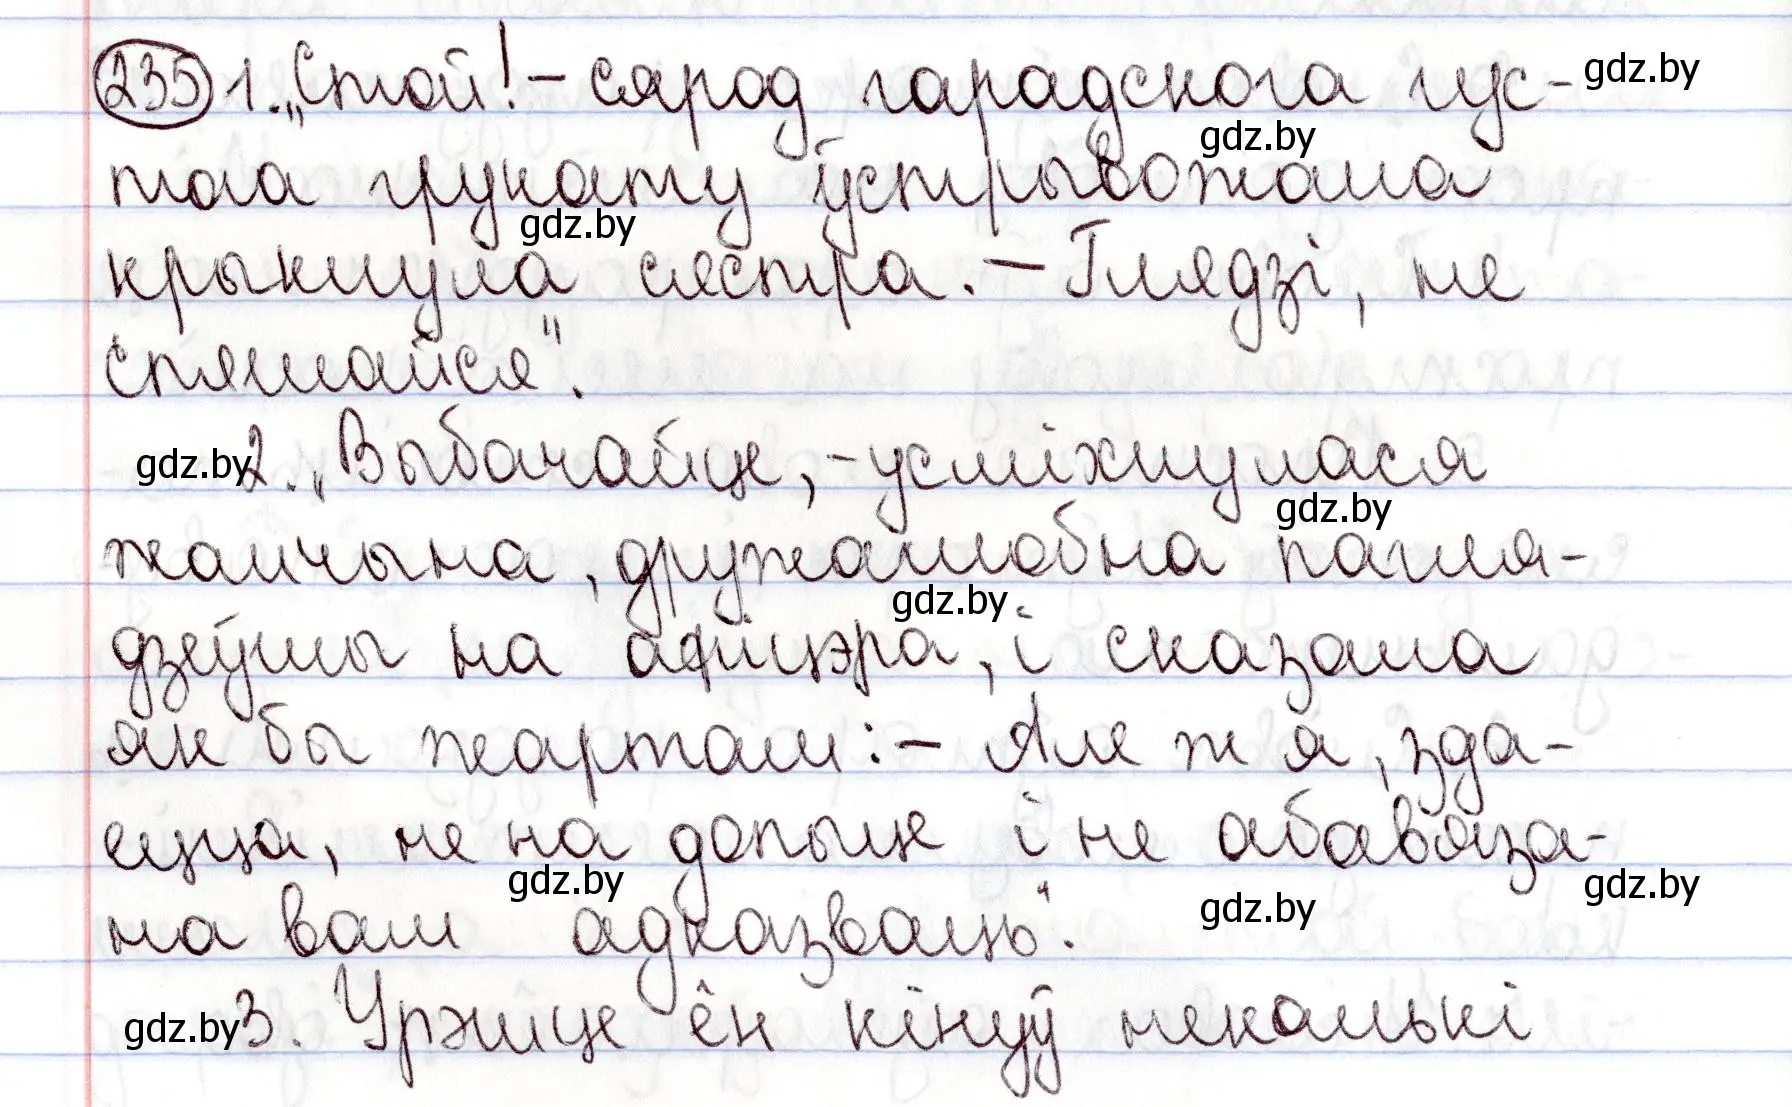 235 1. „Стой! – сярод гарадскога гус-
gdz.by
gdz.by
тога грукату ўстрывожана
gdz.by
крыкнула сястра. – Глядзі, не
спяшайся".
gdz.by
2. „Выбачайце, – усміхнулася
gdz.by
жанчына, дружалюбна пагля-
gdz.by
дзеўшы на афіцэра, і сказала
як бы жартам: – Але ж я, зда-
ецца, не на допыце і не абавяза-
gdz.by
gdz.by
gdz.by
на вам адказваць".
gdz.by
3. Урэшце ён кінуў некалькі